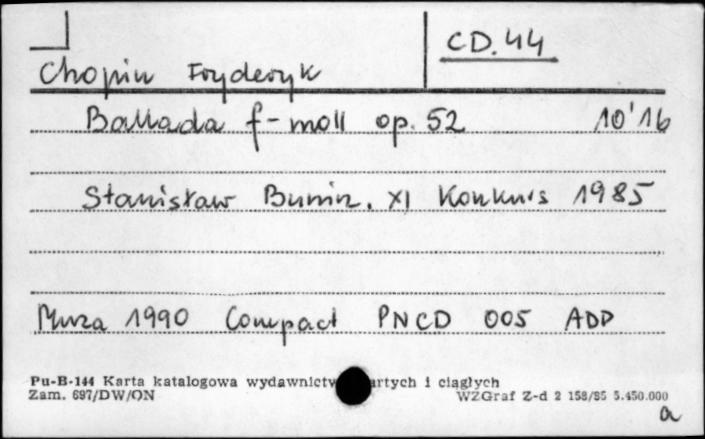 CD.44
Chopin Fryderyk
Ballada f-moll op. 52 10'16
Stanisław Bunin. XI Konkurs 1985
Muza 1990 Compact PNCD 005 ADD
Pu-B-144 Karta katalogowa wydawnictw artych i ciągłych
Zam. 697/DW/ON WZGraf Z-d 2 158/85 5.450.000
a